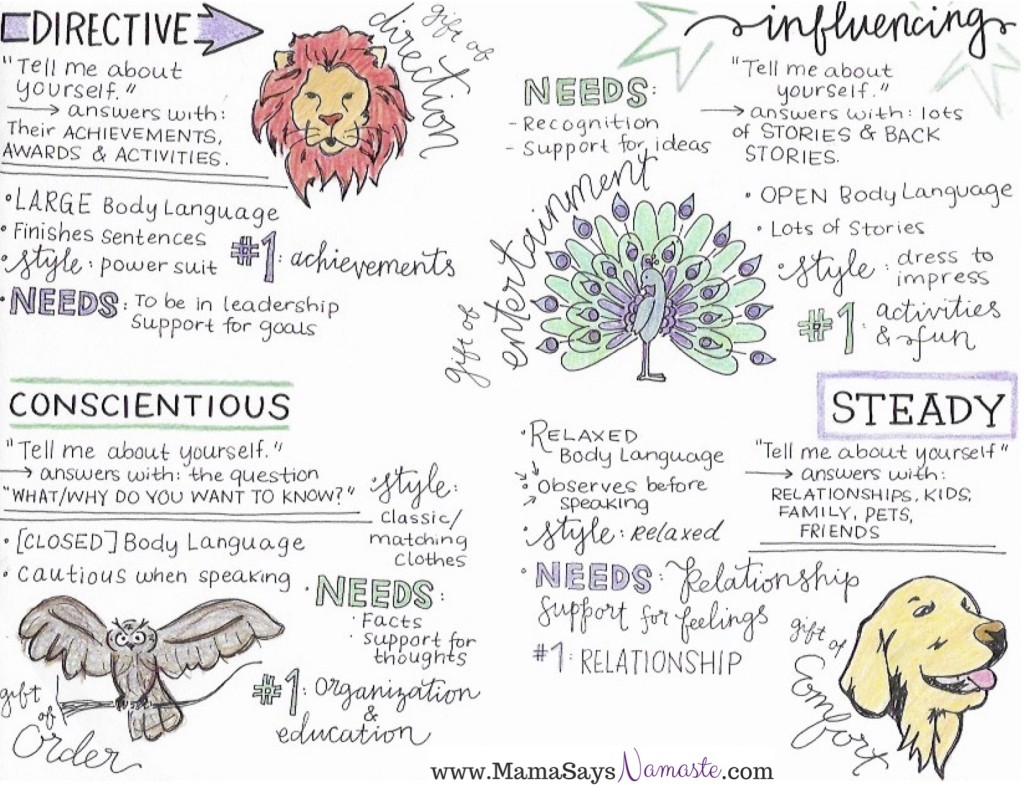 DIRECTIVE
"Tell me about
yourself."
answers with:
Their ACHIEVEMENTS,
AWARDS & ACTIVITIES.
gift of
direction
• LARGE Body Language
• Finishes Sentences
• Style: power suit
#1: achievements
• NEEDS: To be in leadership
Support for goals
influencing
"Tell me about
yourself."
answers with: lots
of STORIES & BACK
STORIES.
NEEDS:
- Recognition
- Support for ideas
gift of
entertainment
• OPEN Body Language
• Lots of Stories
• Style: dress to
impress
#1: activities
& fun
CONSCIENTIOUS
"Tell me about yourself."
answers with: the question
"WHAT/WHY DO YOU WANT TO KNOW?"
• Style:
classic/
matching
clothes
• [CLOSED] Body Language
• Cautious when speaking
• NEEDS:
• Facts
• Support for
thoughts
#1: Organization
&
education
gift
of
Order
STEADY
"Tell me about yourself"
answers with:
RELATIONSHIPS, KIDS,
FAMILY, PETS,
FRIENDS
• RELAXED
Body Language
• Observes before
speaking
• Style: relaxed
• NEEDS: Relationship
Support for feelings
#1: RELATIONSHIP
gift of
Comfort
www.MamaSaysNamaste.com